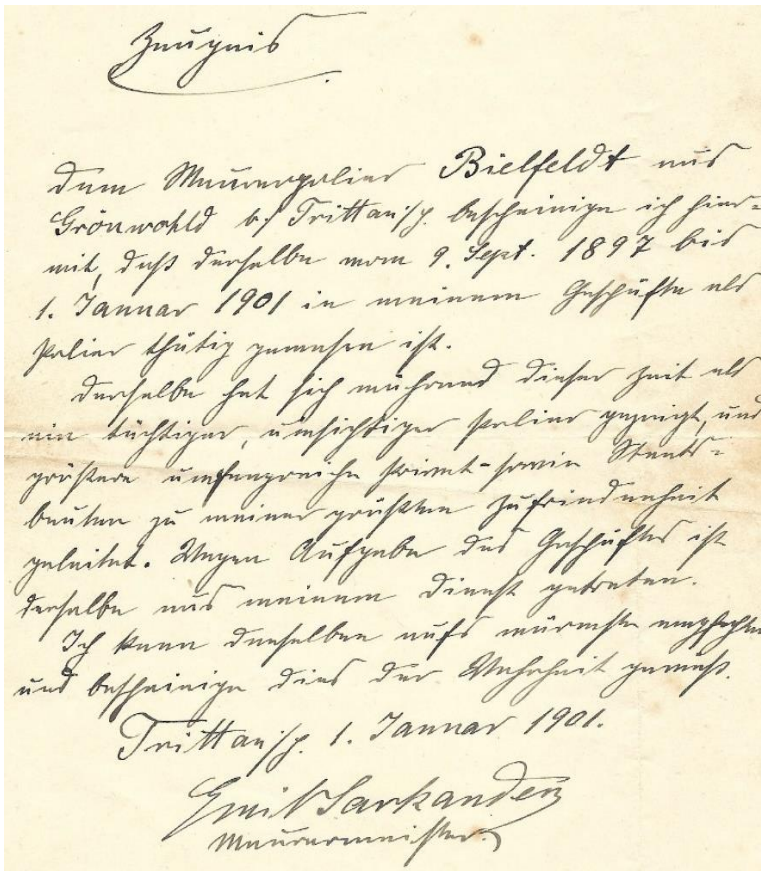 Zeugnis
Dem Maurerpolier Bielfeldt aus
Grönwohld b/ Trittau i/H. bescheinige ich hier=
mit, daß derselbe vom 9. Sept. 1897 bis
1. Januar 1901 in meinem Geschäfte als
Polier thätig gewesen ist.
Derselbe hat sich während dieser Zeit als
ein tüchtiger, umsichtiger Polier gezeigt, und
größere umfangreiche Privat- sowie Staats=
bauten zu meiner größten Zufriedenheit
geleitet. Wegen Aufgabe des Geschäftes ist
derselbe aus meinem Dienst getreten.
Ich kann denselben aufs wärmste empfehlen
und bescheinige dies der Wahrheit gemäß.
Trittau i/H. 1. Januar 1901.
Emil
Maurermeister.